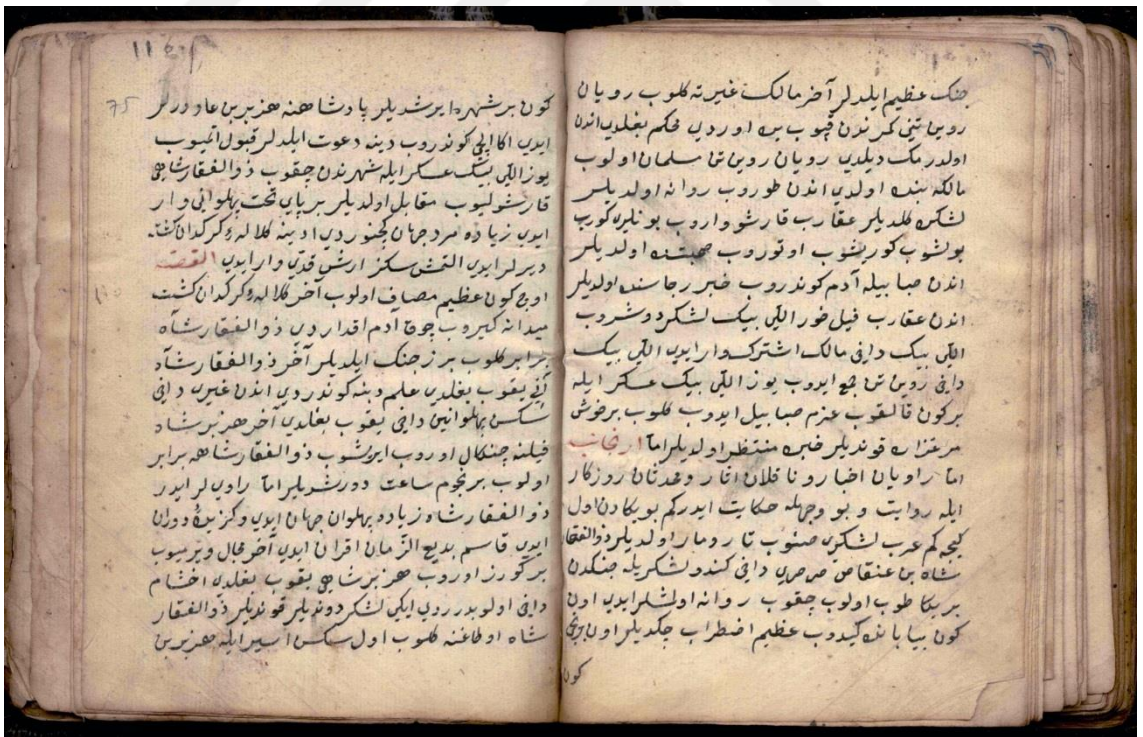 جنك عظیم ایلدلر آخر مالك غیرته كلوب رویان
روین تنی كمرندن قپوب یره اوردی محكم بغلدی اندن
اولدرمك دیلدی رویان روین تن مسلمان اولوب
مالكه بنده اولدی اندن طوروب روانه اولدیلر
لشكره كلدیلر عقارب قارشو واروب بونلری كورب
بولشوب كورشوب اوتوروب صحبتده اولدیلر
اندن صبا بیله آدم كوندروب خبر رجاسنده اولدیلر
اندن عقارب فیل خور اللی بیك لشكر دوشروب
اللی بیك داخی مالك اشتركـ وار ایدی اللی بیك
داخی روین تن جمع ایدوب یوز اللی بیك عسكر ایله
بر كون قالقوب عزم صبا بیل ایدوب كلوب بر خوش
مرغزاره قوندیلر خبره منتظر اولدیلر اما از جانب
اما راویان اخبار و ناقلان اثار و محدثان روزكار
ایله روایت و بو وجهله حكایت ایدر كم بو یكادن اول
كیجه كم عرب لشكری صنوب تار و مار اولدیلر ذوالفقار
شاه بن عنقاص صرصری داخی كندو لشكریله جنكدن
بر یكا طوب اولوب چقوب روانه اولمشلر ایدی اون
كون بیابانده كیدوب عظیم اضطراب چكدیلر اون برنجی
كون
116
75
كون بر شهره ایرشدیلر پادشاهنه هزبر بن عاد دیرلر
ایدی اكا ایلچی كوندروب دینه دعوت ایلدلر قبول اتمیوب
یوز اللی بیك عسكر ایله شهرندن چقوب ذوالفقار شاهی
قارشولیوب مقابل اولدیلر بر پای تخت پهلوانی وار
ایدی زیاده مرد جهان كچنوردی ادینه كلاله كركدان كشت
دیرلر ایدی التمش سكز ارش قدی وار ایدی القصه
اوچ كون عظیم مصاف اولوب آخر كلاله كركدان كشت
میدانه كیروب چوق ادم اقداردی ذوالفقار شاه
برابر كلوب بر ز جنك ایلدیلر آخر ذوالفقار شاه
آنی یقوب بغلدی علم دینه كوندردی اندن غیری داخی
سكسن پهلوانین داخی یقوب بغلدی آخر هزبر شاه
فیلنه چنكال اوروب ایرشوب ذوالفقار شاهه برابر
اولوب بر نجوم ساعت دورشدیلر اما راویلر ایدر
ذوالفقار شاه زیاده پهلوان جهان ایدی و كزیده دوران
ایدی قاسم بدیع الزمان اقران ایدی آخر مجال ویرمیوب
بر كورز اوروب هزبر شاهی یقوب بغلدی اخشام
داخی اولوب دردی ایكی لشكر دوندیلر قوندیلر ذوالفقار
شاه اوطاغنه كلوب اول سكسن اسیر ایله هزبر بن